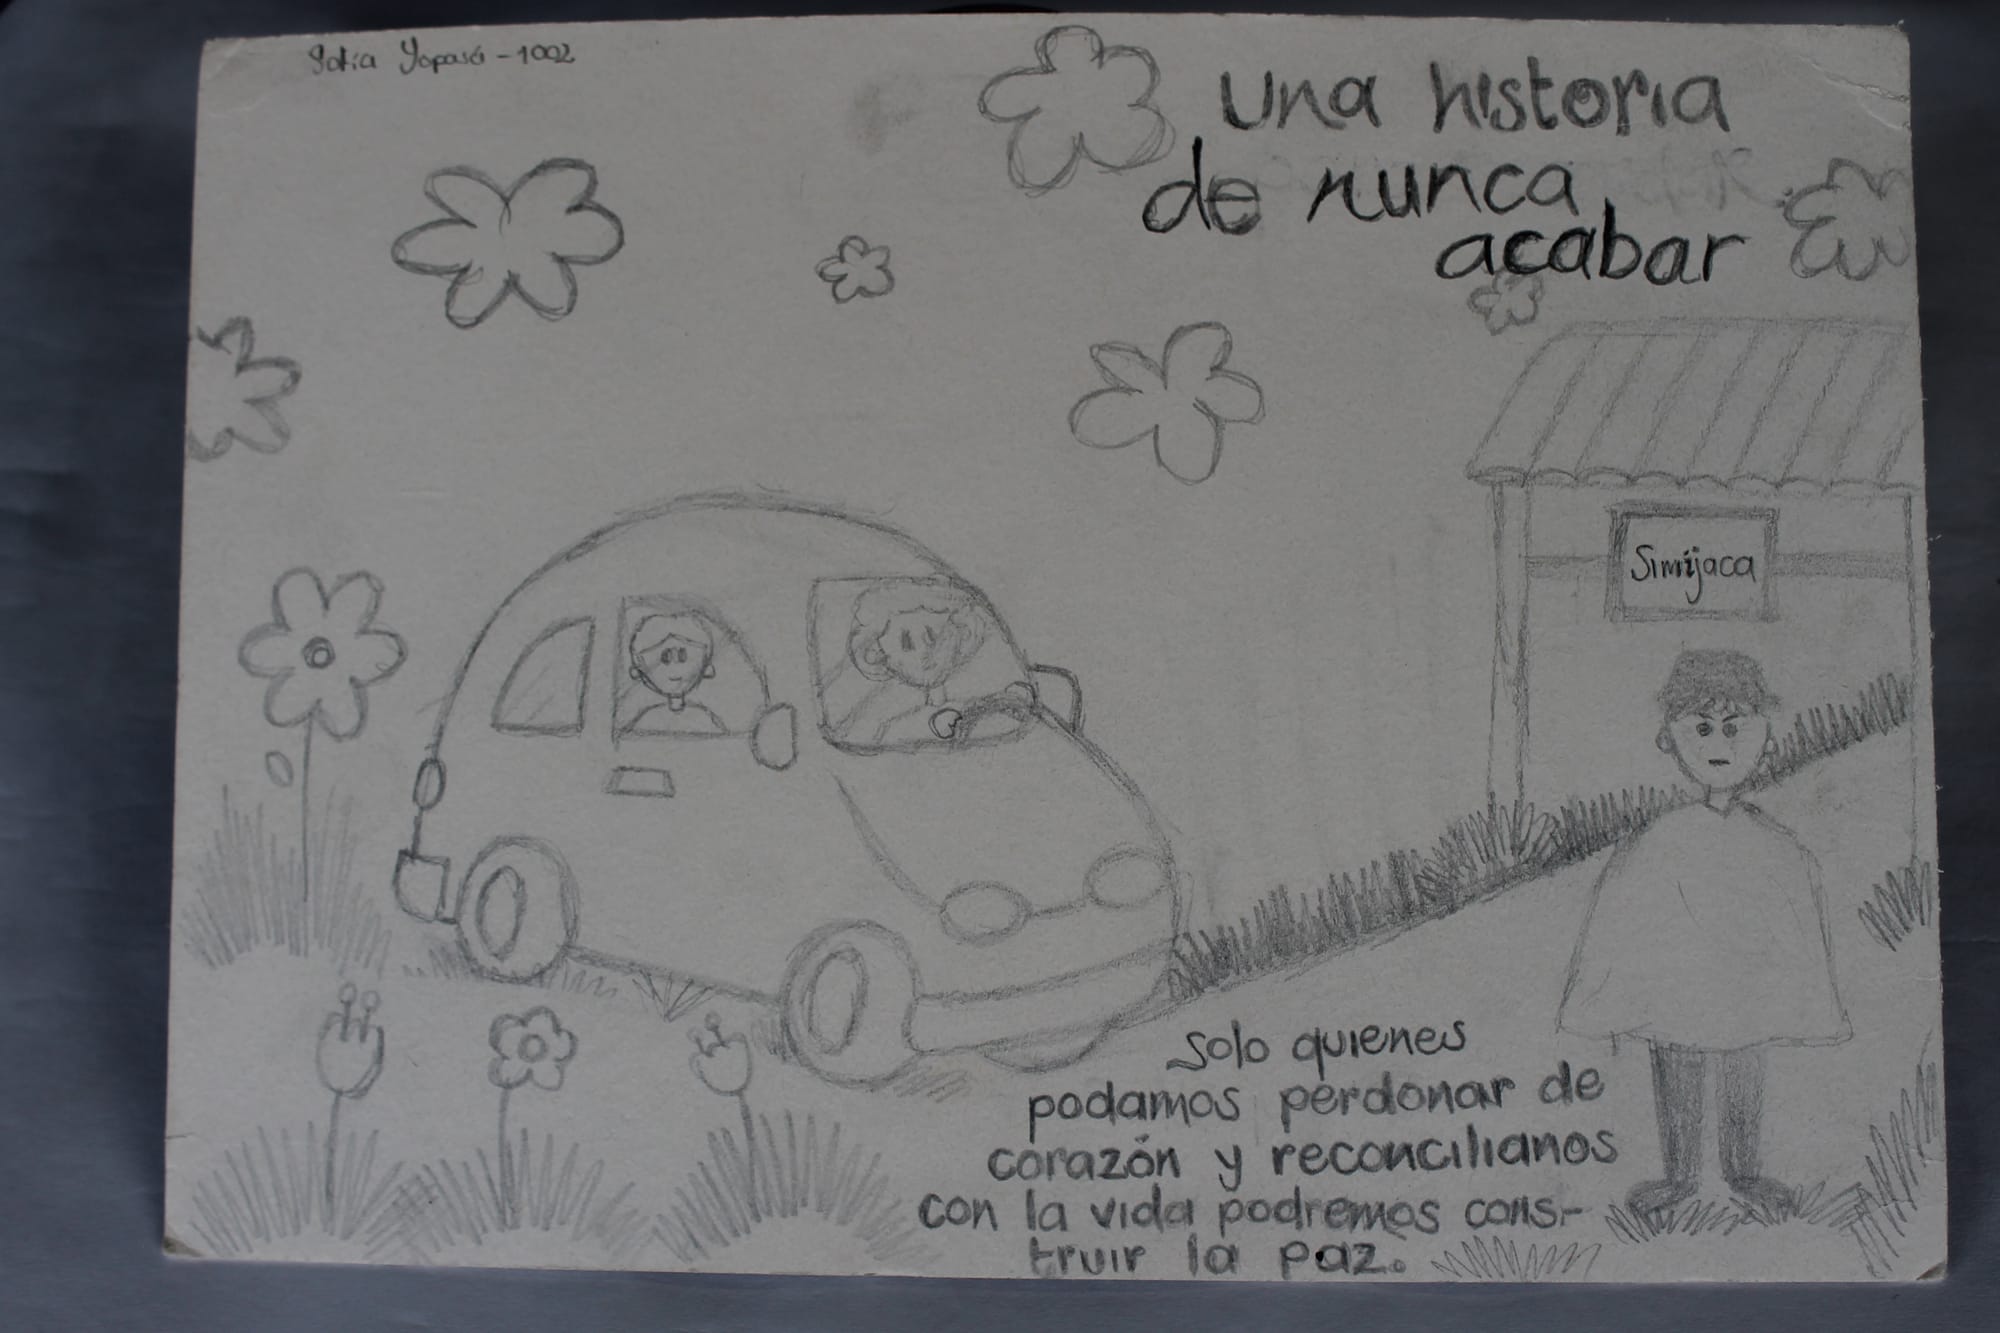 Sofía Yopasá - 1002
Una historia
de nunca
acabar
Simijaca
Solo quienes
podamos perdonar de
corazón y reconcilianos
con la vida podremos cons-
truir la paz.